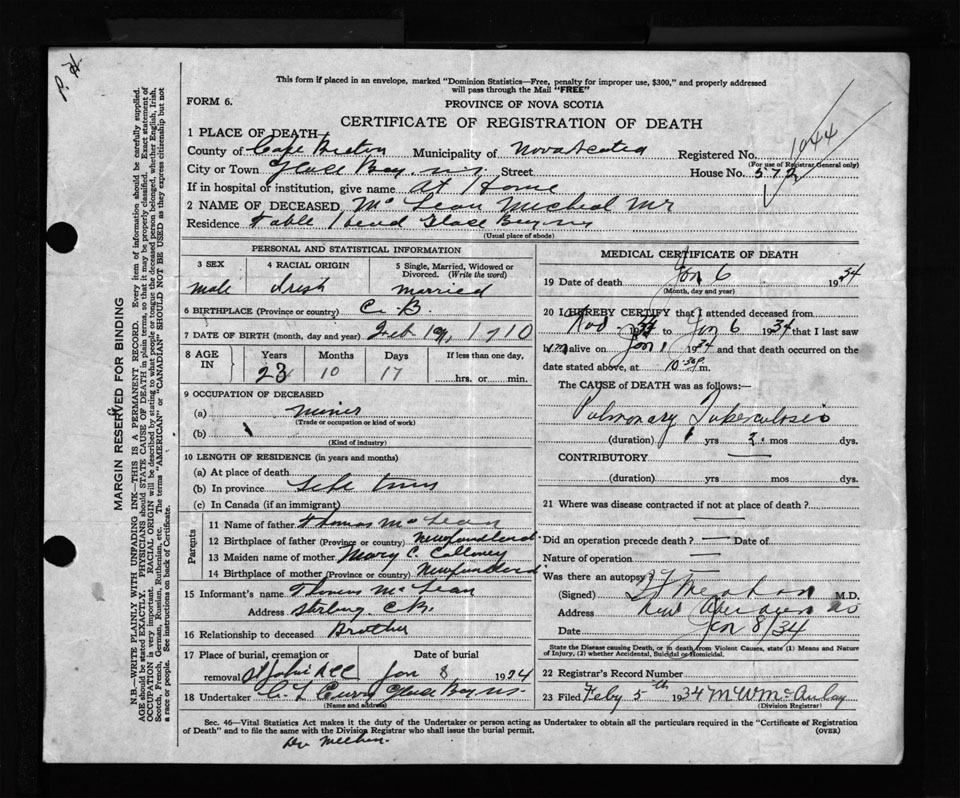 This form if placed in an envelope, marked "Dominion Statistics—Free, penalty for improper use, $300," and properly addressed
will pass through the Mail "FREE"
FORM 6.
PROVINCE OF NOVA SCOTIA
CERTIFICATE OF REGISTRATION OF DEATH
1044
1 PLACE OF DEATH
County of Cape Breton Municipality of Nova Scotia Registered No.
(For use of Registrar General only)
City or Town Glace Bay. n.s Street House No. 572
If in hospital or institution, give name at Home
2 NAME OF DECEASED Mc Lean Micheal Mr
Residence Table Head Glace Bay ns
(Usual place of abode)
PERSONAL AND STATISTICAL INFORMATION
3 SEX 4 RACIAL ORIGIN 5 Single, Married, Widowed or Divorced. (Write the word)
male Irish married
6 BIRTHPLACE (Province or country) C. B.
7 DATE OF BIRTH (month, day and year) Feb 19, 1910
8 AGE IN Years Months Days If less than one day,
23 10 17 hrs. or min.
9 OCCUPATION OF DECEASED
(a) miner
(Trade or occupation or kind of work)
(b)
(Kind of industry)
10 LENGTH OF RESIDENCE (in years and months)
(a) At place of death
(b) In province Life time
(c) In Canada (if an immigrant)
Parents
11 Name of father Thomas Mc Lean
12 Birthplace of father (Province or country) Newfoundland
13 Maiden name of mother Mary C.
14 Birthplace of mother (Province or country) Newfoundland
15 Informant's name Thomas Mc Lean
Address C.B.
16 Relationship to deceased Brother
17 Place of burial, cremation or removal Date of burial
Jan 8 1934
18 Undertaker Glace Bay ns.
(Name and address)
MEDICAL CERTIFICATE OF DEATH
19 Date of death Jan 6 1934
(Month, day and year)
20 I HEREBY CERTIFY that I attended deceased from
Nov to Jan 6 1934 that I last saw
him alive on Jan 1 1934 and that death occurred on the
date stated above, at 10.30 p m.
The CAUSE of DEATH was as follows:—
Pulmonary Tuberculosis
(duration) yrs 2 mos dys.
CONTRIBUTORY
(duration) yrs mos dys.
21 Where was disease contracted if not at place of death?
Did an operation precede death? Date of
Nature of operation
Was there an autopsy?
(Signed) M.D.
Address New Aberdeen
Date Jan 8/34
State the Disease causing Death, or in death from Violent Causes, state (1) Means and Nature
of Injury, (2) whether Accidental, Suicidal or Homicidal.
22 Registrar's Record Number
23 Filed Feby 5th 1934 M W McAulay
(Division Registrar)
Sec. 46—Vital Statistics Act makes it the duty of the Undertaker or person acting as Undertaker to obtain all the particulars required in the "Certificate of Registration
of Death" and to file the same with the Division Registrar who shall issue the burial permit. (OVER)
MARGIN RESERVED FOR BINDING
N.B.—WRITE PLAINLY WITH UNFADING INK—THIS IS A PERMANENT RECORD. Every item of information should be carefully supplied.
AGE should be stated EXACTLY. PHYSICIANS should STATE CAUSE OF DEATH in plain terms, so that it may be properly classified. Exact statement of
OCCUPATION is very important. RACIAL ORIGIN will be described by stating to what people or tongue the deceased person belonged, whether English, Irish,
Scotch, French, German, Russian, Ruthenian, etc. The terms "AMERICAN" or "CANADIAN" SHOULD NOT BE USED as they express citizenship but not
a race or people. See instructions on back of Certificate.